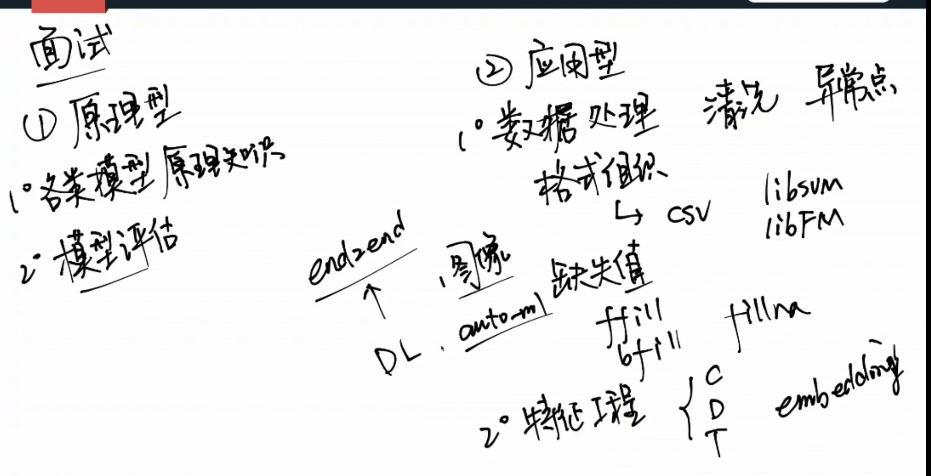 面试
① 原理型
1° 各类模型 原理知识
2° 模型评估
② 应用型
1° 数据处理 清洗 异常点
格式组织
↳ csv libsvm
libFM
end2end
↑
DL . auto-ml
图像
缺失值
ffill fillna
bfill
2° 特征工程 { C
D
T
embedding